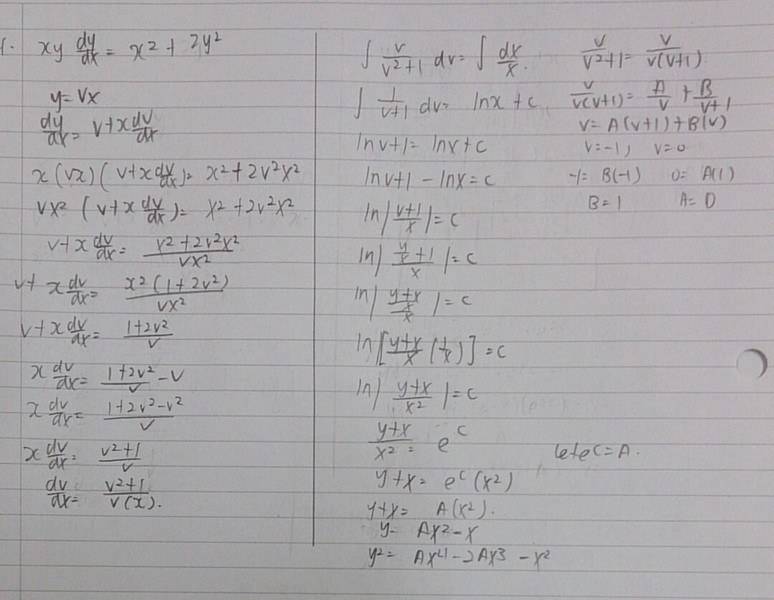 1. xy dy/dx = x² + 2y²
y = vx
dy/dx = v + x dv/dx
x(vx)(v + x dv/dx) = x² + 2v²x²
vx² (v + x dv/dx) = x² + 2v²x²
v + x dv/dx = x² + 2v²x² / vx²
v + x dv/dx = x²(1 + 2v²) / vx²
v + x dv/dx = 1 + 2v² / v
x dv/dx = 1 + 2v² / v - v
x dv/dx = 1 + 2v² - v² / v
x dv/dx = v² + 1 / v
dv/dx = v² + 1 / v(x).
∫ v / v² + 1 dv = ∫ dx / x.
∫ 1 / v + 1 dv = ln x + c
ln v + 1 = ln x + c
ln v + 1 - ln x = c
ln | v + 1 / x | = c
ln | y/x + 1 / x | = c
ln | y + x / x / x | = c
ln [ y + x / x (1/x) ] = c
ln | y + x / x² | = c
y + x / x² = e^c
let e^c = A.
y + x = e^c (x²)
y + x = A(x²).
y = Ax² - x
y² = Ax⁴ - 2Ax³ - x²
v / v² + 1 = v / v(v + 1)
v / v(v + 1) = A / v + B / v + 1
v = A(v + 1) + B(v)
v = -1, v = 0
-1 = B(-1) 0 = A(1)
B = 1 A = 0